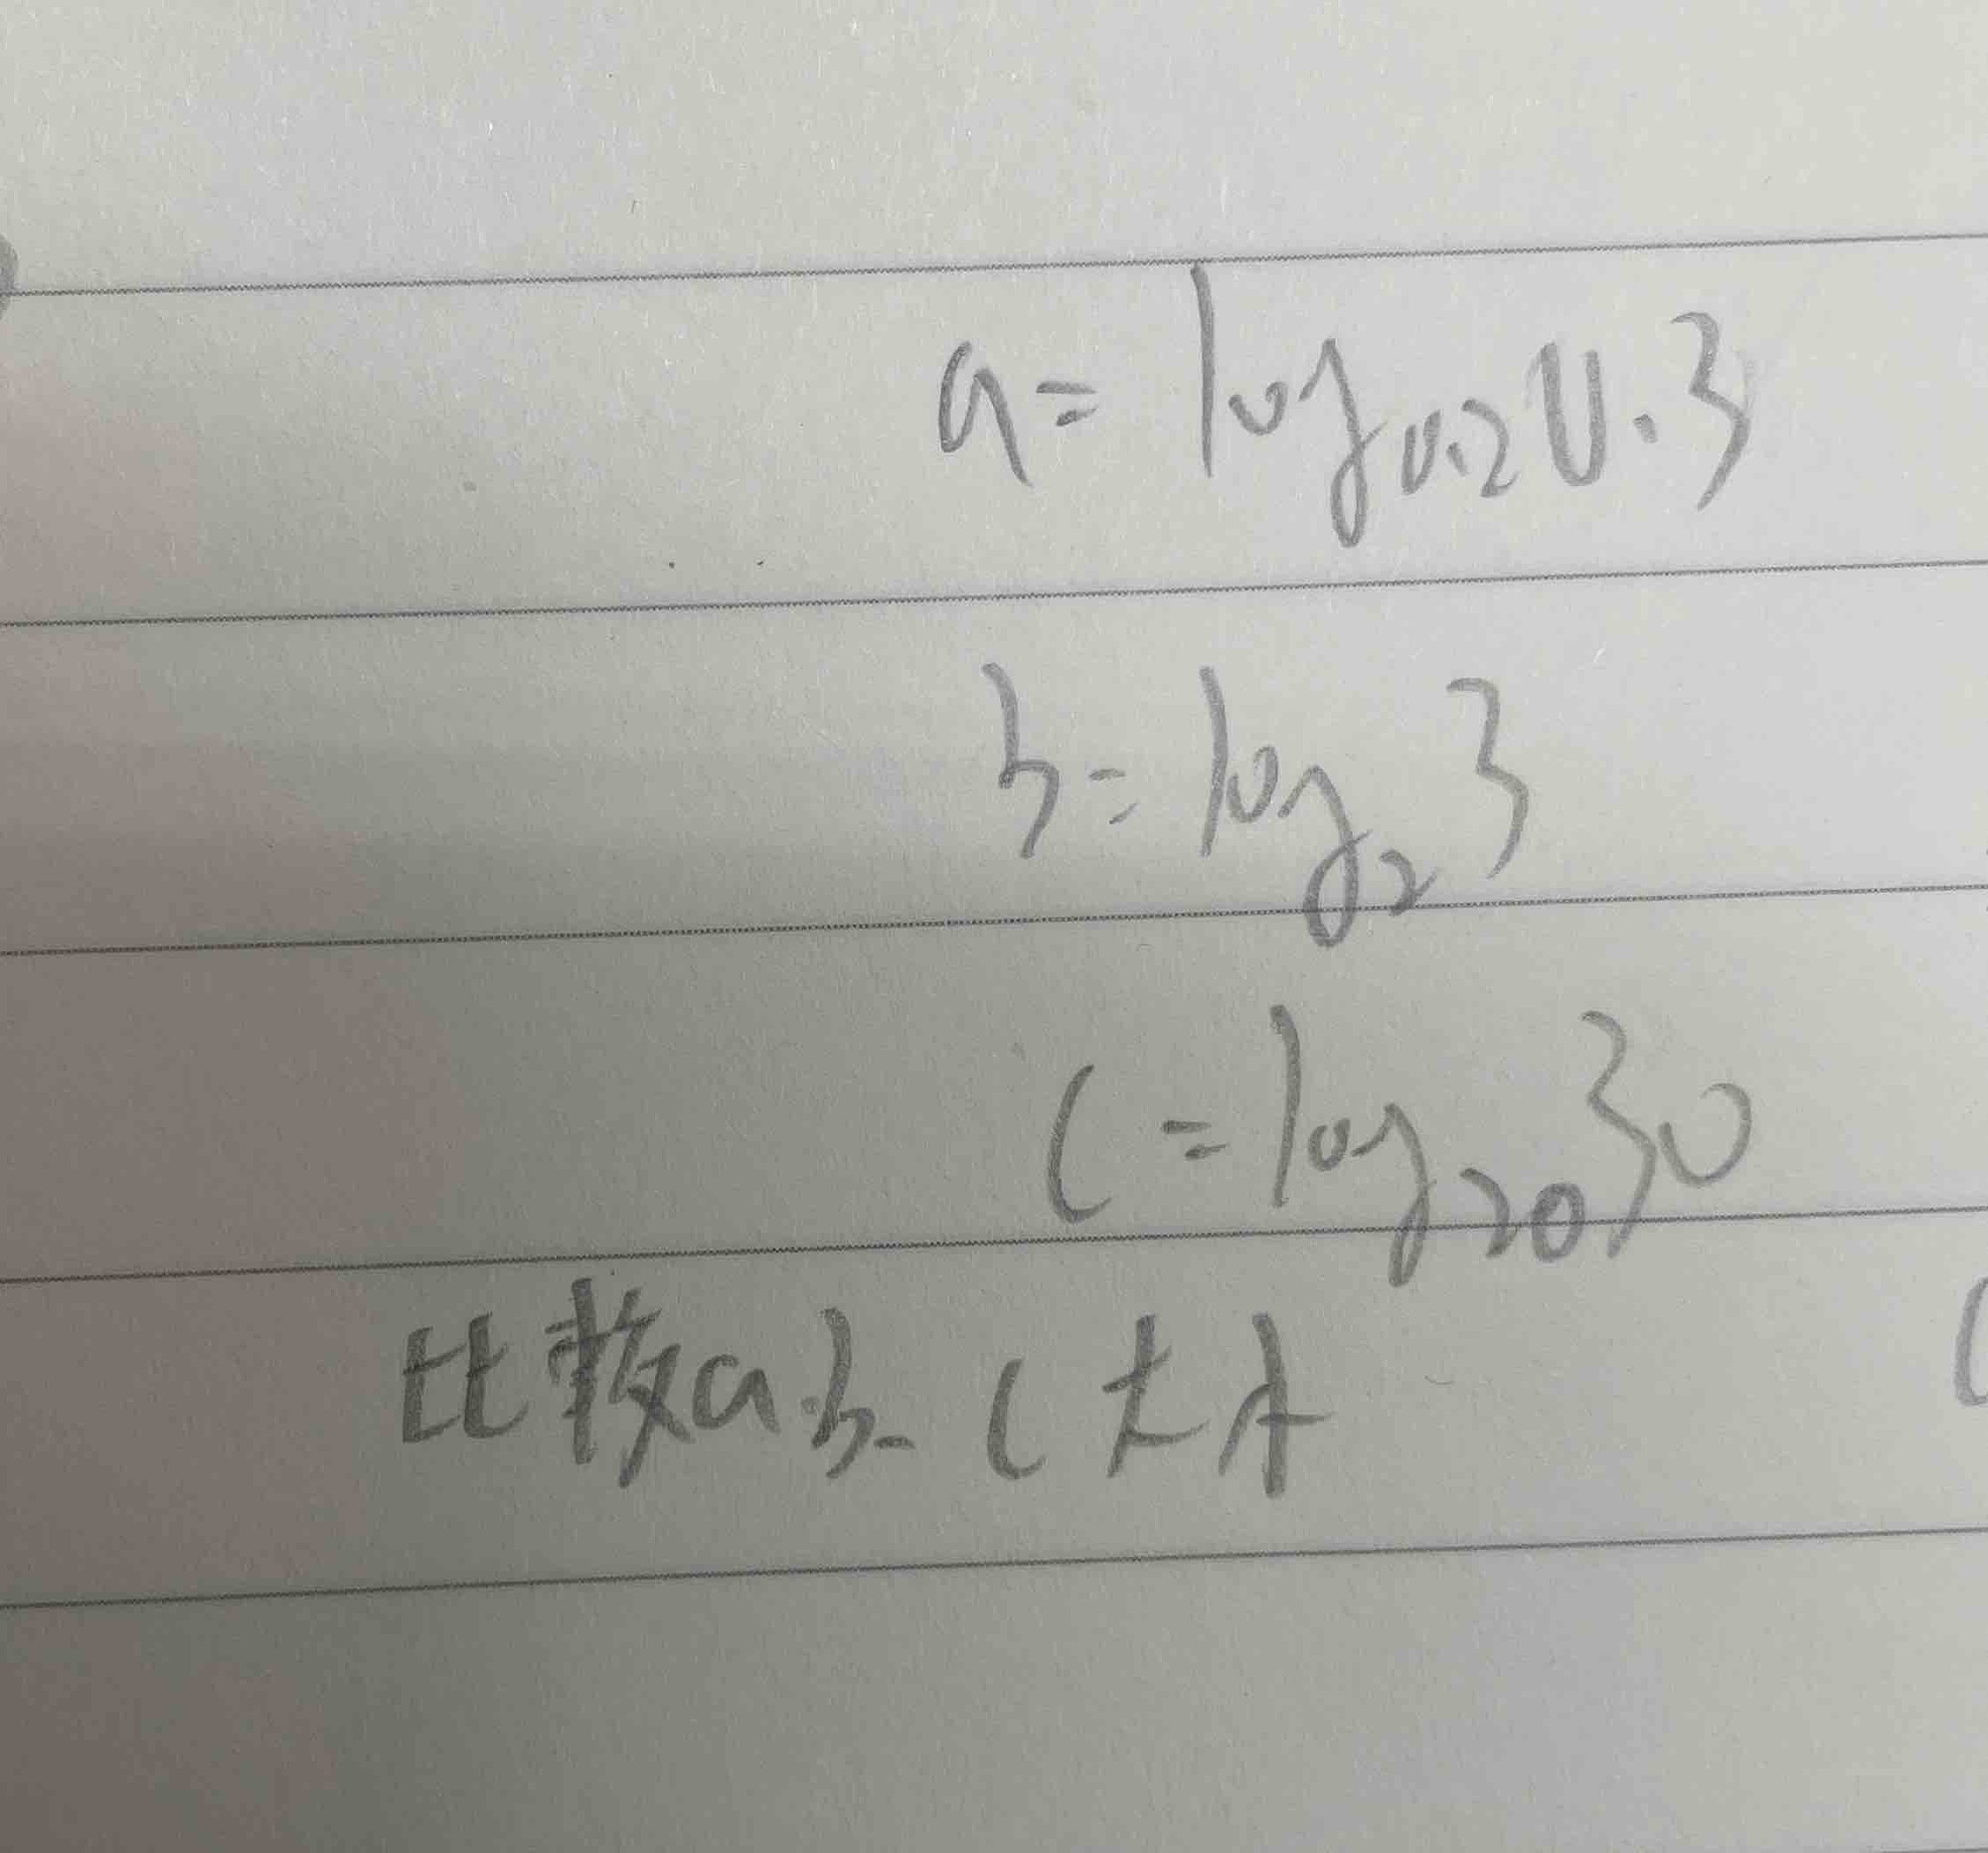 a = log₀.₂0.3
b = log₂3
c = log₂₀30
比较a.b.c大小